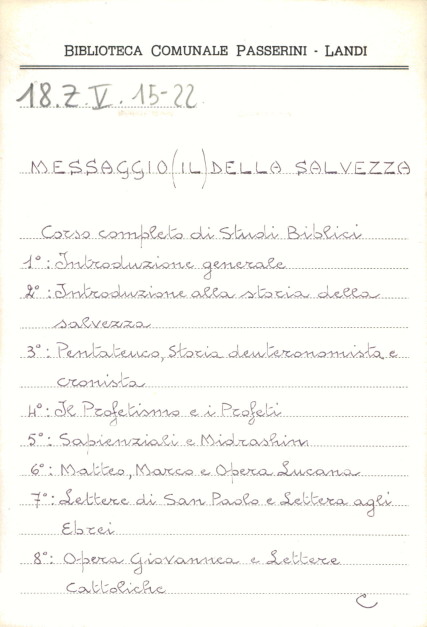 BIBLIOTECA COMUNALE PASSERINI - LANDI
18.Z.V. 15-22
MESSAGGIO (IL) DELLA SALVEZZA
Corso completo di Studi Biblici
1°: Introduzione generale
2°: Introduzione alla storia della
salvezza
3°: Pentateuco, Storia deuteronomista e
cronista
4°: Il Profetismo e i Profeti
5°: Sapienziali e Midrashim
6°: Matteo, Marco e Opera Lucana
7°: Lettere di San Paolo e Lettera agli
Ebrei
8°: Opera Giovannea e Lettere
Cattoliche
C